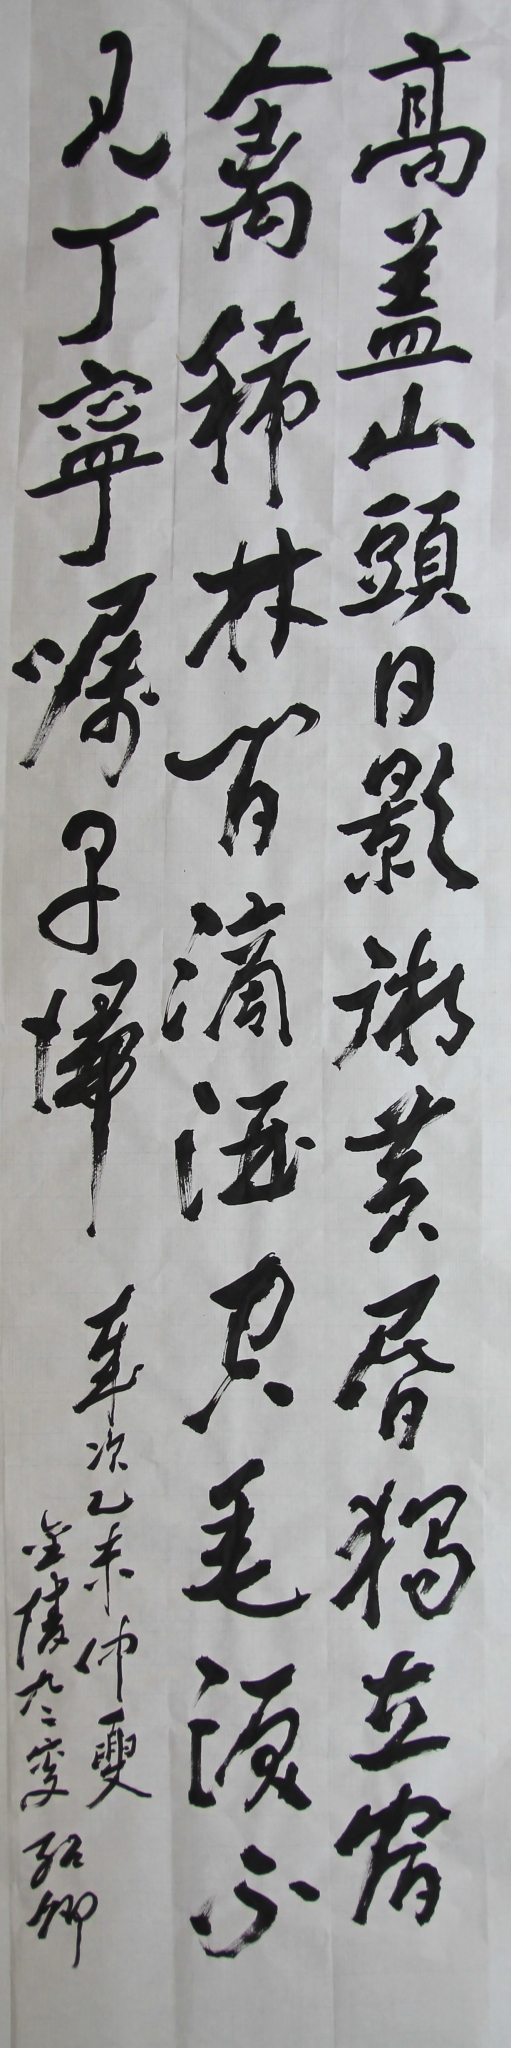 高盖山頭日影微黄昏獨立宿
禽稀林間滴酒空垂淚不
見丁寧囑早歸
歲次乙未仲夏
金陵九二叟 卿